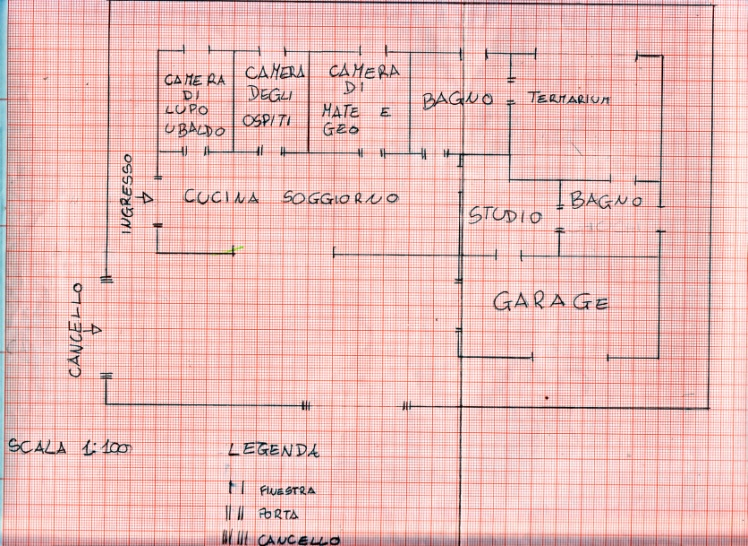 CAMERA
DI
LUPO
UBALDO
CAMERA
DEGLI
OSPITI
CAMERA
DI
MATE E
GEO
BAGNO
TERMARIUM
INGRESSO
CUCINA SOGGIORNO
STUDIO
BAGNO
GARAGE
CANCELLO
SCALA 1:100
LEGENDA
FINESTRA
PORTA
CANCELLO